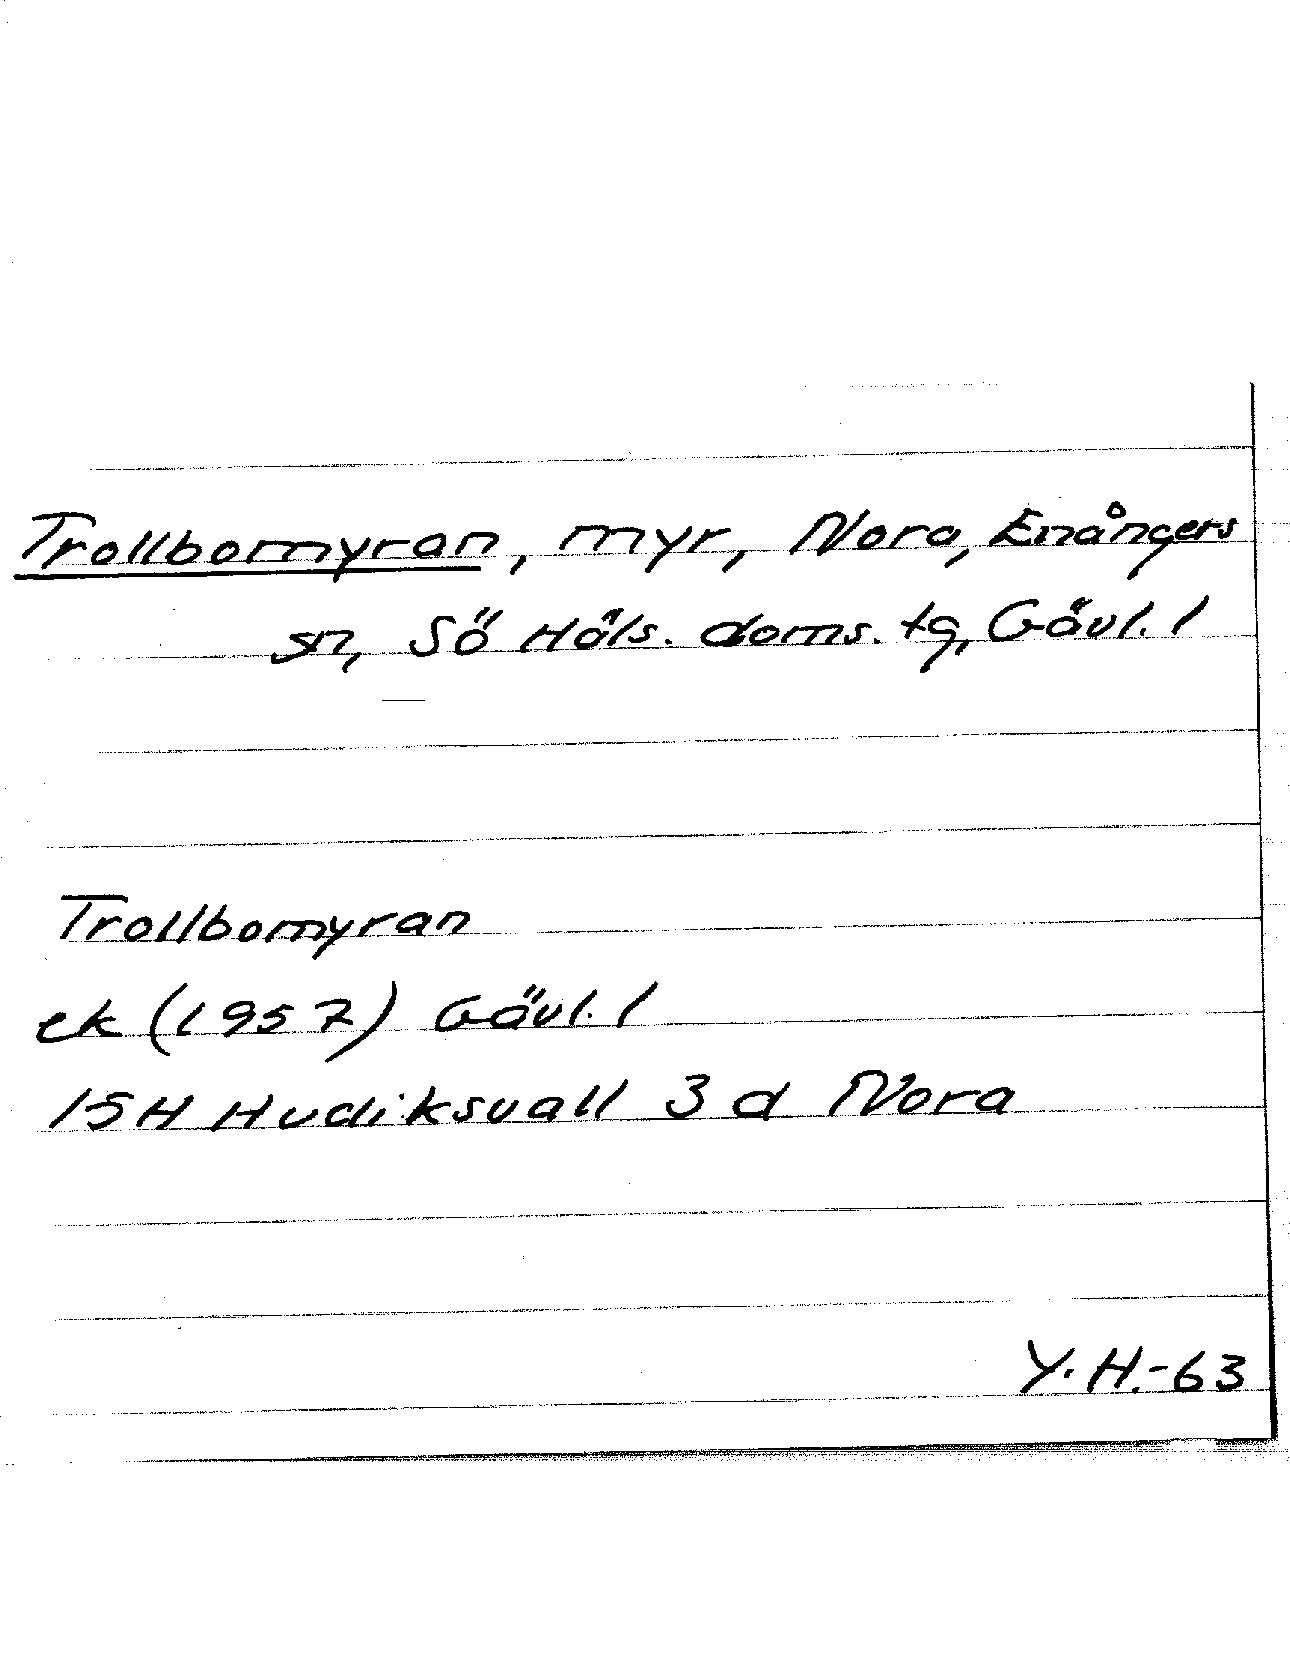 Trollbomyran, myr, Nora, Enångers
sn, Sö Häls. doms. tg, Gävl. l
Trollbomyran
ek (1957) Gävl. l
15H Hudiksvall 3 d Nora
Y. H. - 63